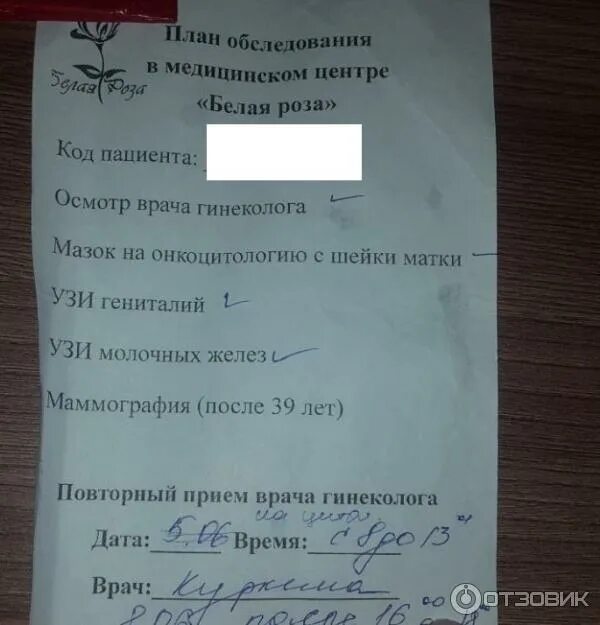 План обследования
в медицинском центре
Белая Роза
«Белая роза»
Код пациента:
Осмотр врача гинеколога
Мазок на онкоцитологию с шейки матки
УЗИ гениталий
УЗИ молочных желез
Маммография (после 39 лет)
Повторный прием врача гинеколога
Дата: 5.06 Время: с 8 до 13
Врач:
после 16 00
ОТЗОВИК